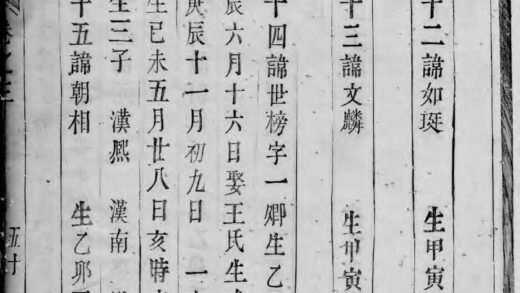 十二諱如珽 生甲寅
十三諱文麟 生甲寅
十四諱世榜字一卿生乙
辰六月十六日娶王氏生
庚辰十一月初九日 一
生已未五月廿八日亥時
生三子 漢熈 漢南
十五諱朝相 生乙卯
五十